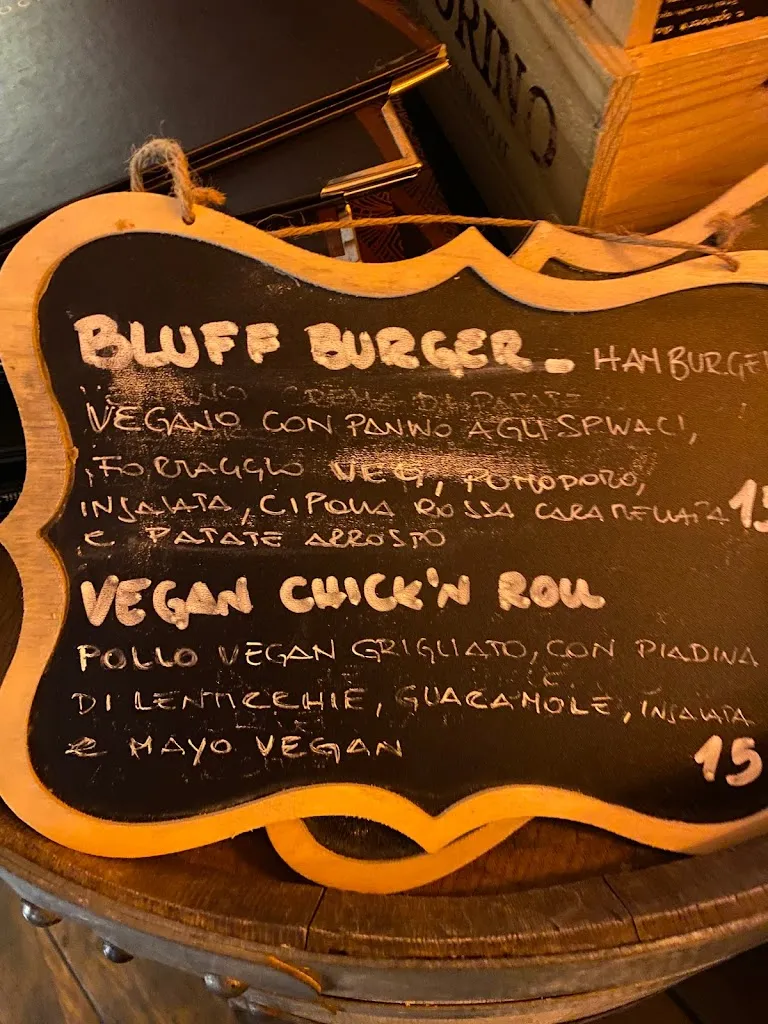 RINO
BLUFF BURGER - HAMBURGER
VEGANO CON PANINO AGLI SPINACI,
FORMAGGIO VEG, POMODORO,
INSALATA, CIPOLLA ROSSA CARAMELLATA 15
E PATATE ARROSTO
VEGAN CHICK'N ROLL
POLLO VEGAN GRIGLIATO, CON PIADINA
DI LENTICCHIE, GUACAMOLE, INSALATA
E MAYO VEGAN
15